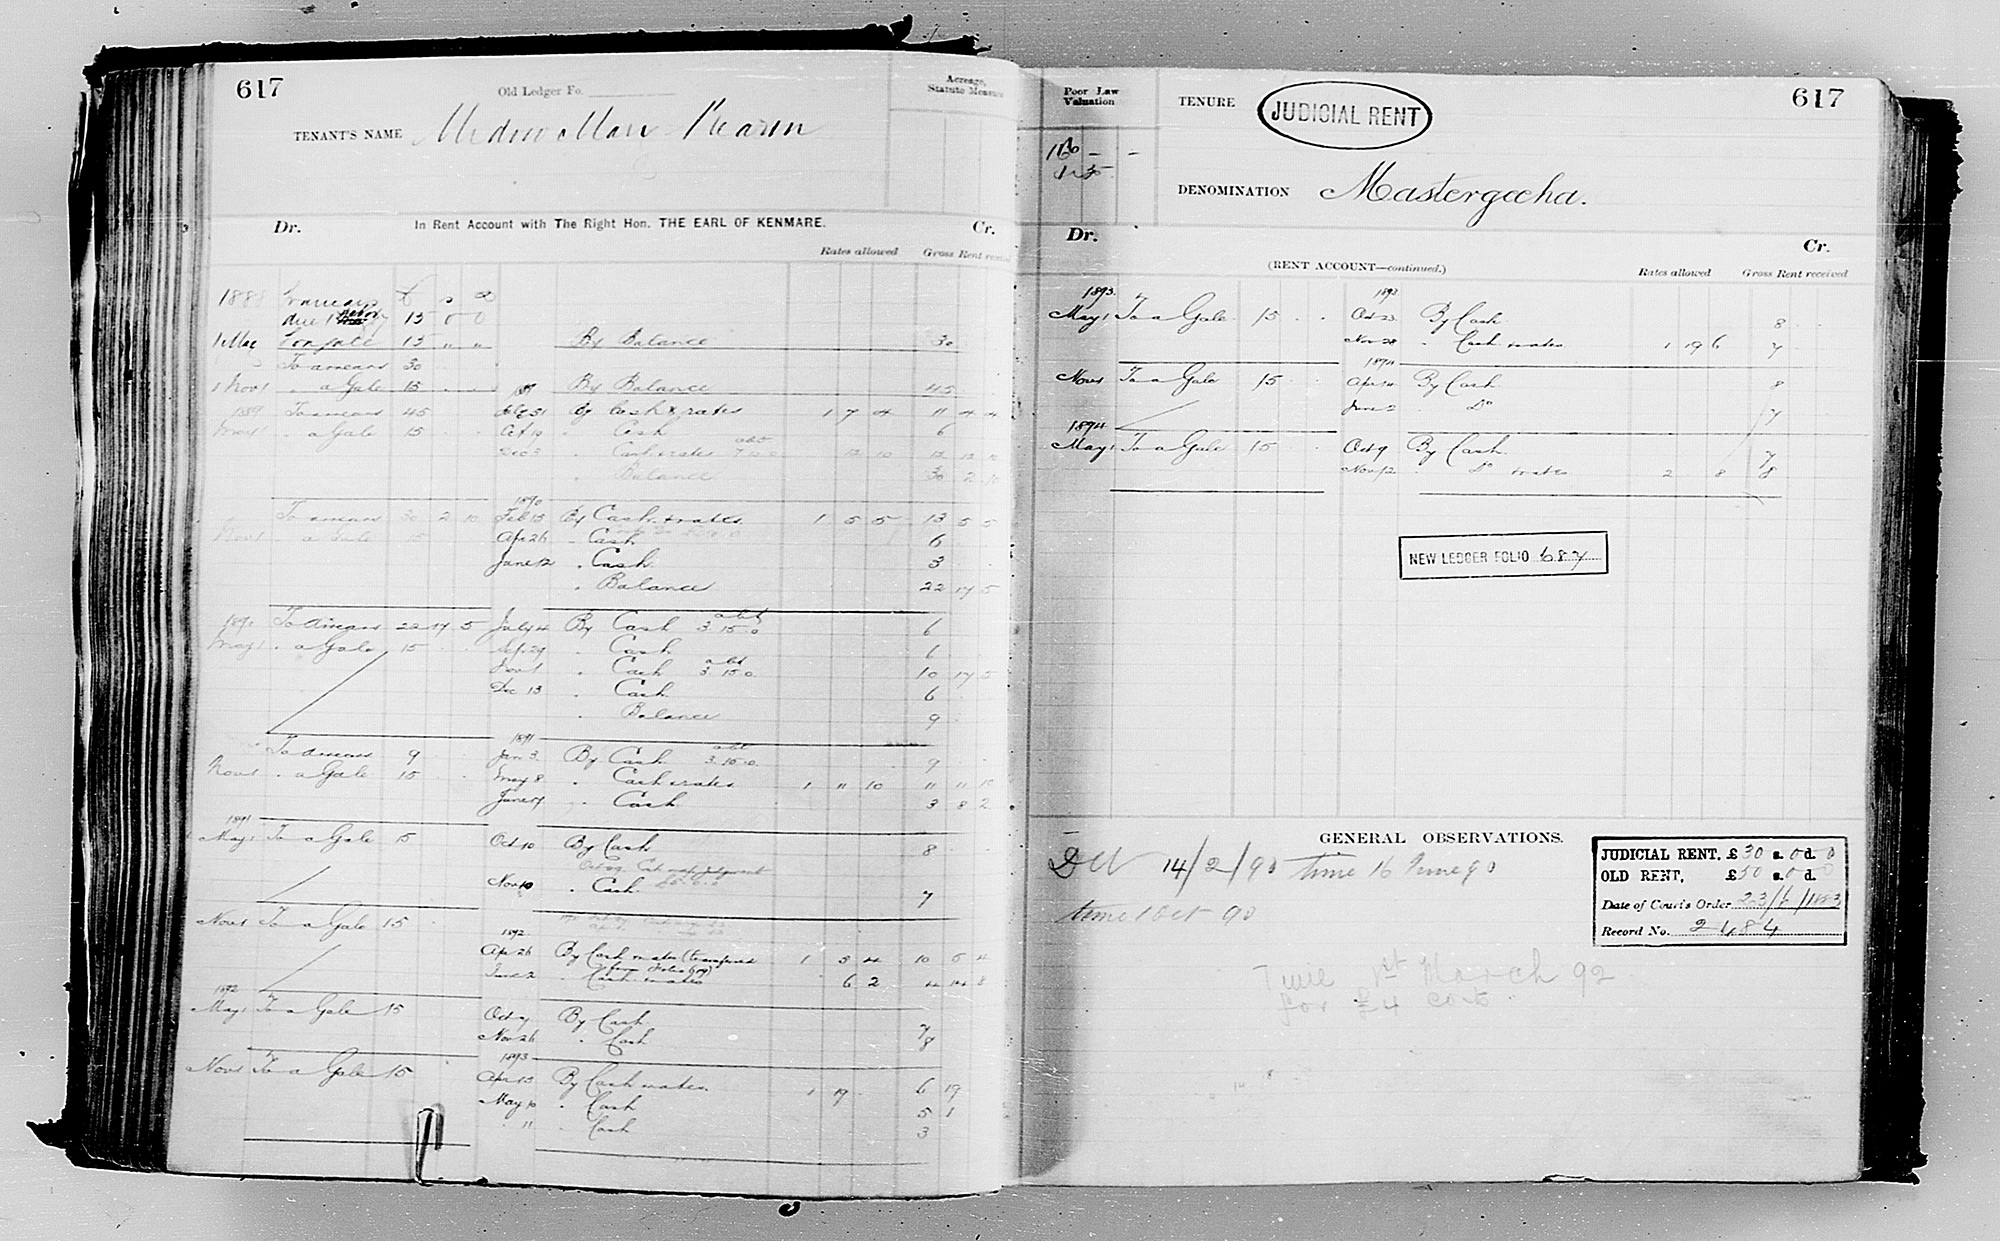 617
Old Ledger Fo.
Acreage, Statute Measure
TENANT'S NAME Widow Mary Kearin
Dr. In Rent Account with The Right Hon. THE EARL OF KENMARE. Cr.
Rates allowed Gross Rent received
1888 To arrears £ s d
due 1 15 0 0
1 May To a gale 15 " " By Balance 30
To arrears 30
1 Novr " a Gale 15 1889 By Balance 45
1889 To arrears 45 By Cash & rates 1 7 4 11 4 4
May 1 " a Gale 15 Oct 19 " Cash 6
Dec 3 " Cash & rates abt 12 10 12 12 10
" Balance 30 2 10
1890
To arrears 30 2 10 Feb 15 By Cash & rates 1 5 5 13 5 5
Nov 1 " a Gale 15 Apr 26 " Cash 6
June 12 " Cash 3
" Balance 22 17 5
1890 To arrears 22 17 5 July 4 By Cash abt 3 15 0 6
May 1 " a Gale 15 Sep 29 " Cash 6
Nov 1 " Cash abt 3 15 0 10 17 5
Dec 13 " Cash 6
" Balance 9
1891
To arrears 9 Jan 3 By Cash abt 3 15 0 9
Nov 1 " a Gale 15 May 8 " Cash & rates 1 11 10 11 11 10
June 17 " Cash 3 8 2
1891
May 1 To a Gale 15 Oct 10 By Cash 8
Nov 10 " Cash 7
Nov 1 To a Gale 15
1892
Apr 26 By Cash & rates (transferred 1 3 4 10 5 4
from folio
June 2 " Cash & rates 6 2 4 14 8
1892
May 1 To a Gale 15 Oct 7 By Cash 7
Nov 26 " Cash 8
1893
Nov 1 To a Gale 15 Apr 13 By Cash & rates 1 19 6 19
May 10 " Cash 5 1
" 11 " Cash 3
Poor Law Valuation
TENURE JUDICIAL RENT 617
DENOMINATION Mastergeeha.
Dr. Cr.
(RENT ACCOUNT—continued.) Rates allowed Gross Rent received
1893 1893
May 1 To a Gale 15 Oct 23 By Cash 8
Nov 28 " Cash & rates 1 19 6 7
1894
Nov 1 To a Gale 15 Apr 14 By Cash 8
June 2 " Do 7
1894
May 1 To a Gale 15 Oct 9 By Cash 7
Nov 12 " Do & rates 2 8 8
NEW LEDGER FOLIO 687
GENERAL OBSERVATIONS.
14/2/90 time 16 June 90
time 1 Oct 90
Time 1st March 92
for £4 cost
JUDICIAL RENT, £30 s. 0 d. 0
OLD RENT, £50 s. 0 d. 0
Date of Court's Order 23/6/1883
Record No. 2484